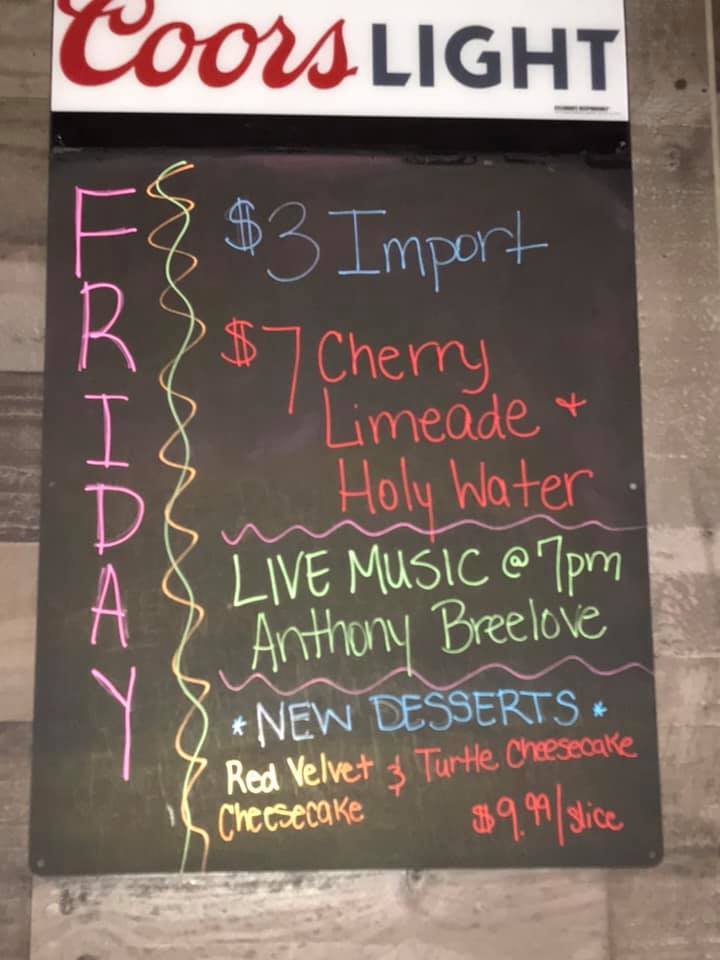 Coors LIGHT
FRIDAY
$3 Import
$7 Cherry
Limeade +
Holy Water
LIVE MUSIC @ 7pm
Anthony Breelove
* NEW DESSERTS *
Red Velvet & Turtle Cheesecake
Cheesecake $9.99/slice